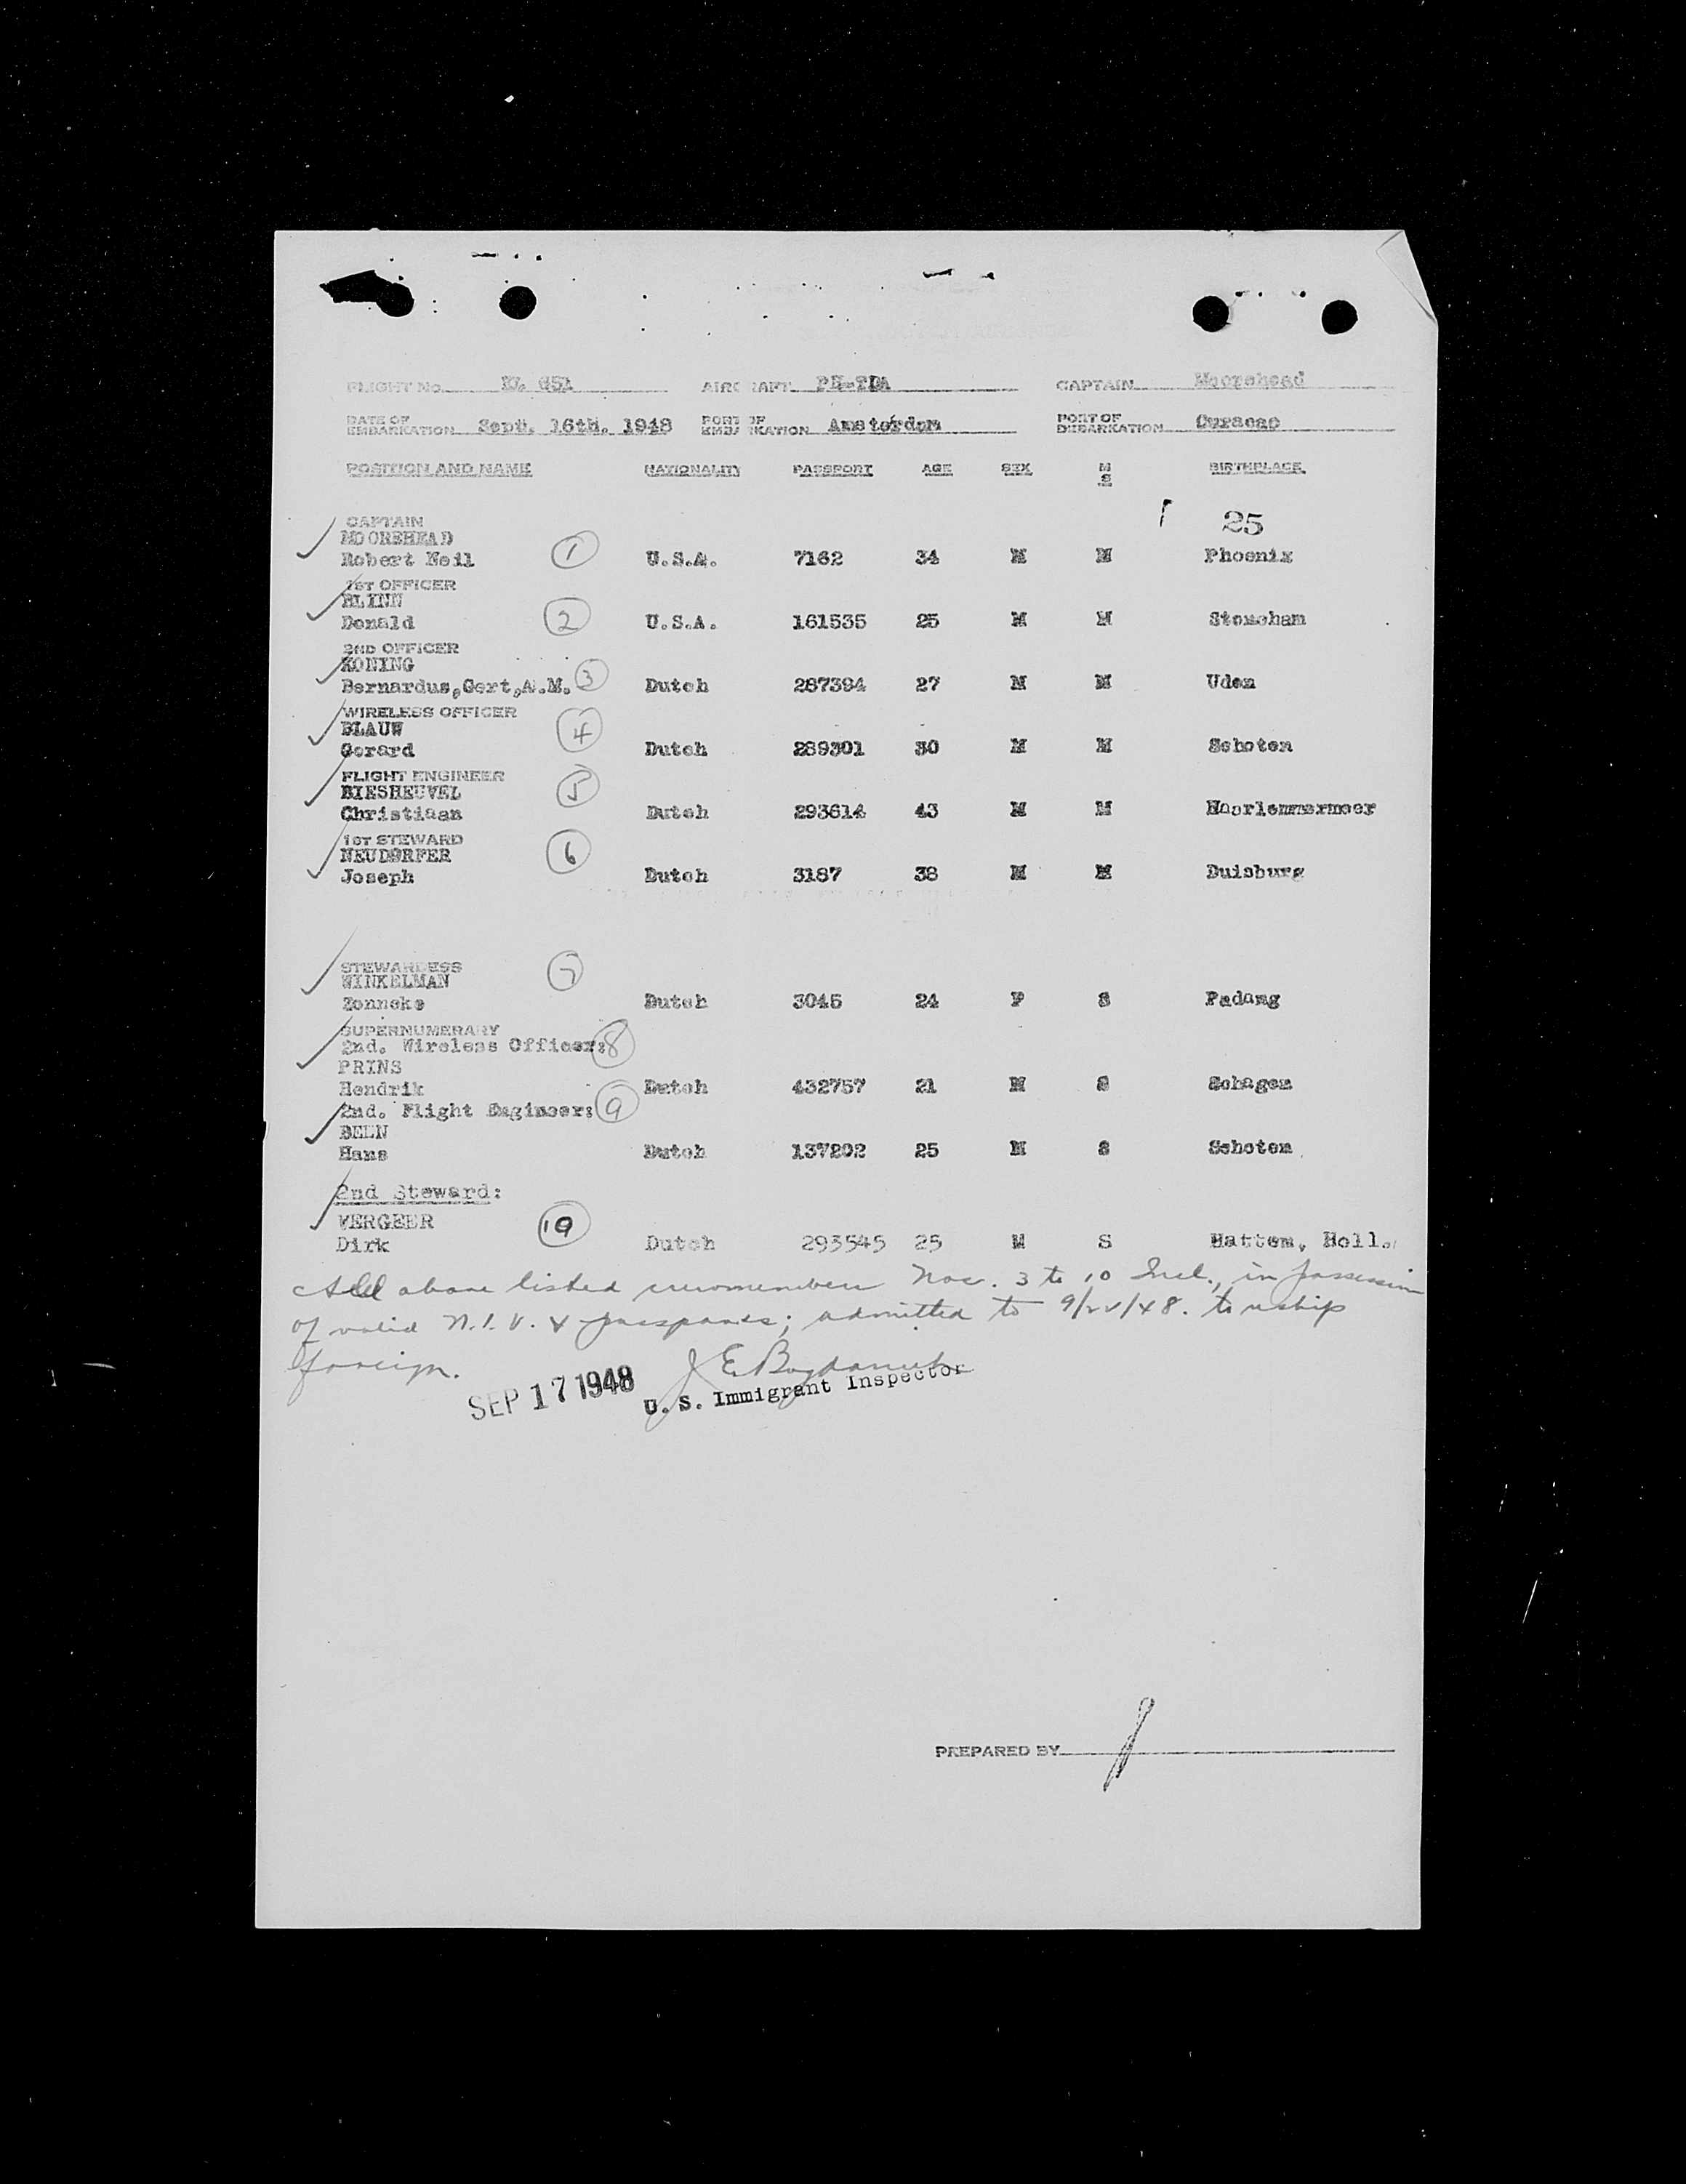 FLIGHT No. KL 651 AIRCRAFT PH-TDA CAPTAIN Moorehead
DATE OF EMBARKATION Sept. 16th. 1948 PORT OF EMBARKATION Amsterdam PORT OF DEBARKATION Curacao
POSITION AND NAME NATIONALITY PASSPORT AGE SEX M S BIRTHPLACE
25
CAPTAIN
MOOREHEAD
Robert Neil 1 U.S.A. 7162 34 M M Phoenix
1ST OFFICER
BLINN
Donald 2 U.S.A. 161535 25 M M Stoneham
2ND OFFICER
KONING
Bernardus,Gert,A.M. 3 Dutch 287394 27 M M Uden
WIRELESS OFFICER
BLAUW
Gerard 4 Dutch 289301 30 M M Schoten
FLIGHT ENGINEER
BIESHEUVEL
Christiaan 5 Dutch 293614 43 M M Haarlemmermeer
1ST STEWARD
NEUDORFER
Joseph 6 Dutch 3187 38 M M Duisburg
STEWARDESS
WINKELMAN
Zonneke 7 Dutch 3045 24 F S Padang
SUPERNUMERARY
2nd. Wireless Officer: 8
PRINS
Hendrik Dutch 432757 21 M S Schagen
2nd. Flight Engineer: 9
BELN
Hans Dutch 137202 25 M S Schoten
2nd Steward:
VERGEER 10
Dirk Dutch 293545 25 M S Hattem, Holl.
All above listed crewmembers Nos. 3 to 10 Incl., in possession
of valid N.I.V. & passports; admitted to 9/22/48. to reship
foreign.
SEP 17 1948
U. S. Immigrant Inspector
PREPARED BY